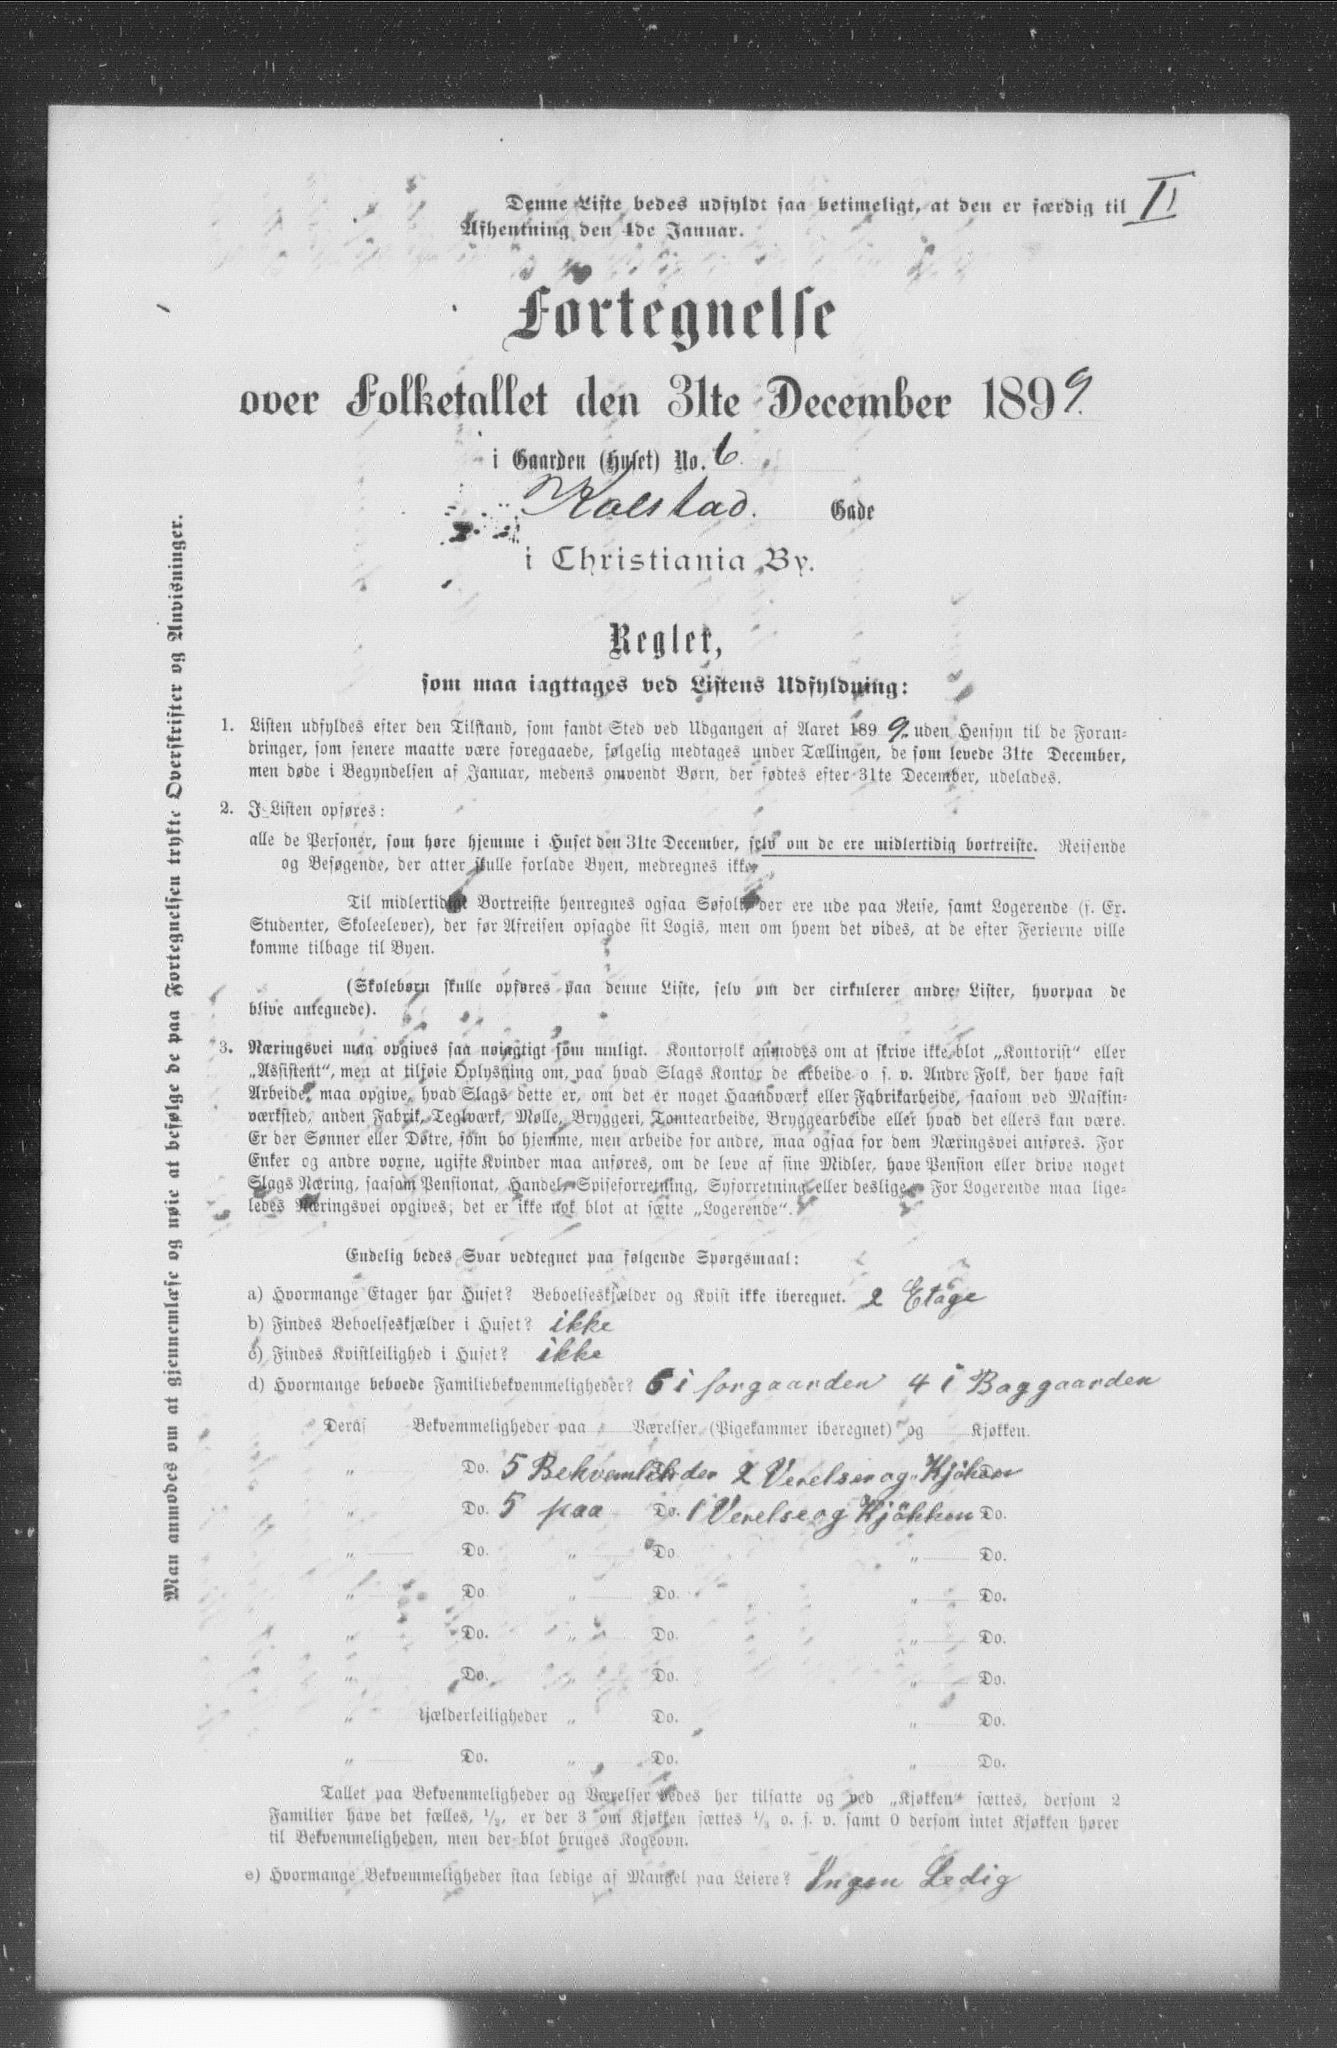 Denne Liste bedes udfyldt saa betimeligt, at den er færdig til
II
Afhentning den 4de Januar.
Fortegnelse
over Folketallet den 31te December 1899.
i Gaarden (Huset) No. 6
Kolstad. Gade
i Christiania By.
Regler,
som maa iagttages ved Listens Udfyldning:
1. Listen udfyldes efter den Tilstand, som fandt Sted ved Udgangen af Aaret 1899, uden Hensyn til de Foran-
dringer, som senere maatte være foregaaede, følgelig medtages under Tællingen, de som levede 31te December,
men døde i Begyndelsen af Januar, medens omvendt Børn, der fødtes efter 31te December, udelades.
2. I Listen opføres:
alle de Personer, som høre hjemme i Huset den 31te December, selv om de ere midlertidig bortreiste. Reisende
og Besøgende, der atter skulle forlade Byen, medregnes ikke.
Til midlertidigt Bortreiste henregnes ogsaa Søfolk, der ere ude paa Reise, samt Logerende (f. Ex.
Studenter, Skoleelever), der før Afreisen opsagde sit Logis, men om hvem det vides, at de efter Ferierne ville
komme tilbage til Byen.
(Skolebørn skulle opføres paa denne Liste, selv om der cirkulerer andre Lister, hvorpaa de
blive antegnede).
3. Næringsvei maa opgives saa nøiagtigt som muligt. Kontorfolk anmodes om at skrive ikke blot „Kontorist“ eller
„Assistent“, men at tilføie Oplysning om, paa hvad Slags Kontor de arbeide o. s. v. Andre Folk, der have fast
Arbeide, maa opgive, hvad Slags dette er, om det er noget Haandværk eller Fabrikarbeide, saasom ved Maskin-
værksted, anden Fabrik, Teglværk, Mølle, Bryggeri, Tomtearbeide, Bryggearbeide eller hvad det ellers kan være.
Er der Sønner eller Døtre, som bo hjemme, men arbeide for andre, maa ogsaa for dem Næringsvei anføres. For
Enker og andre voxne, ugifte Kvinder maa anføres, om de leve af sine Midler, have Pension eller drive noget
Slags Næring, saasom Pensionat, Handel, Spiseforretning, Syforretning eller deslige. For Logerende maa lige-
ledes Næringsvei opgives; det er ikke nok blot at sætte „Logerende“.
Endelig bedes Svar vedtegnet paa følgende Spørgsmaal:
a) Hvormange Etager har Huset? Beboelseskjælder og Kvist ikke iberegnet. 2 Etage
b) Findes Beboelseskjælder i Huset? ikke
c) Findes Kvistleilighed i Huset? ikke
d) Hvormange beboede Familiebekvemmeligheder? 6 i forgaarden 4 i Baggaarden
Deraf Bekvemmeligheder paa Værelser (Pigekammer iberegnet) og Kjøkken.
„ Do. 5 Bekvemlihder 2 Verelser og Kjöken Do.
„ Do. 5 paa Do. 1 Verelse og Kjökken Do.
„ Do. „ Do. „ Do.
„ Do. „ Do. „ Do.
„ Do. „ Do. „ Do.
„ Do. „ Do. „ Do.
„ Kjælderleiligheder „ Do. „ Do.
„ Do. „ Do. „ Do.
Tallet paa Bekvemmeligheder og Værelser bedes her tilsatte og ved „Kjøkken“ sættes, dersom 2
Familier have det fælles, 1/2, er der 3 om Kjøkken sættes 1/3 o. s. v. samt 0 dersom intet Kjøkken hører
til Bekvemmeligheden, men der blot bruges Kogeovn.
e) Hvormange Bekvemmeligheder staa ledige af Mangel paa Leiere? Ingen Ledig
Man anmodes om at gjennemlæse og nøie at befølge de paa Fortegnelsen trykte Overskrifter og Anvisninger.